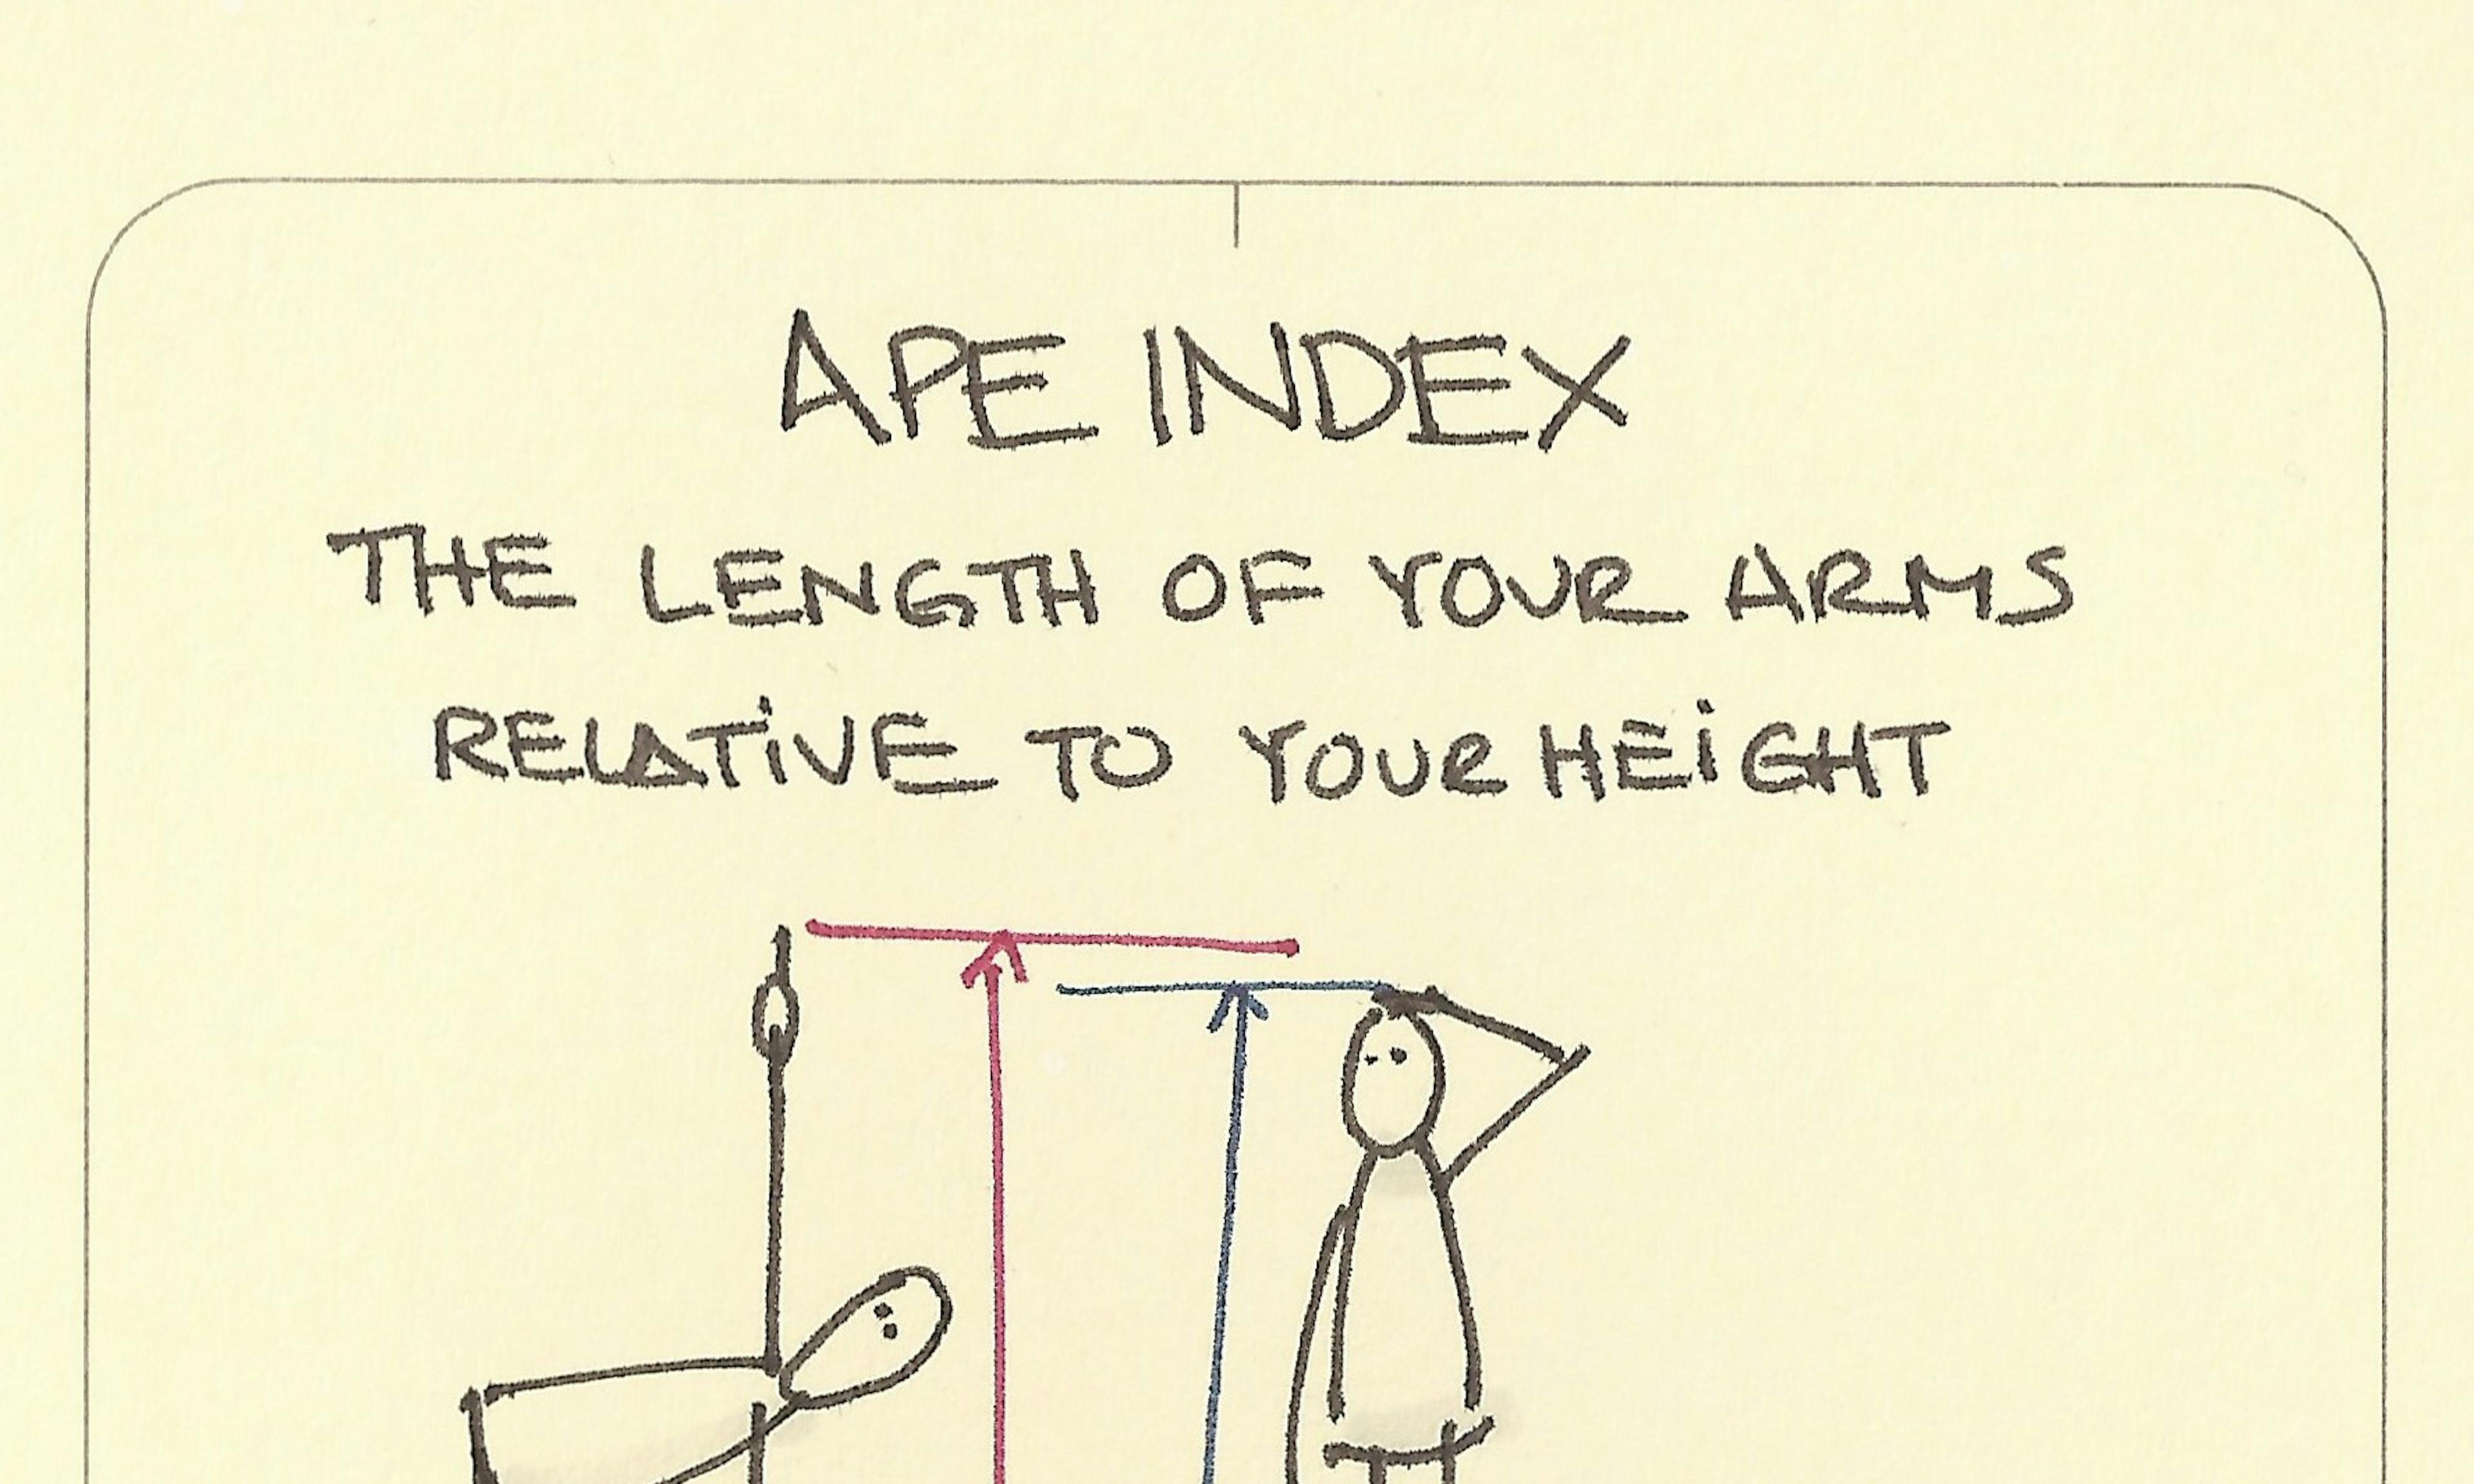 APE INDEX
THE LENGTH OF YOUR ARMS
RELATIVE TO YOUR HEIGHT